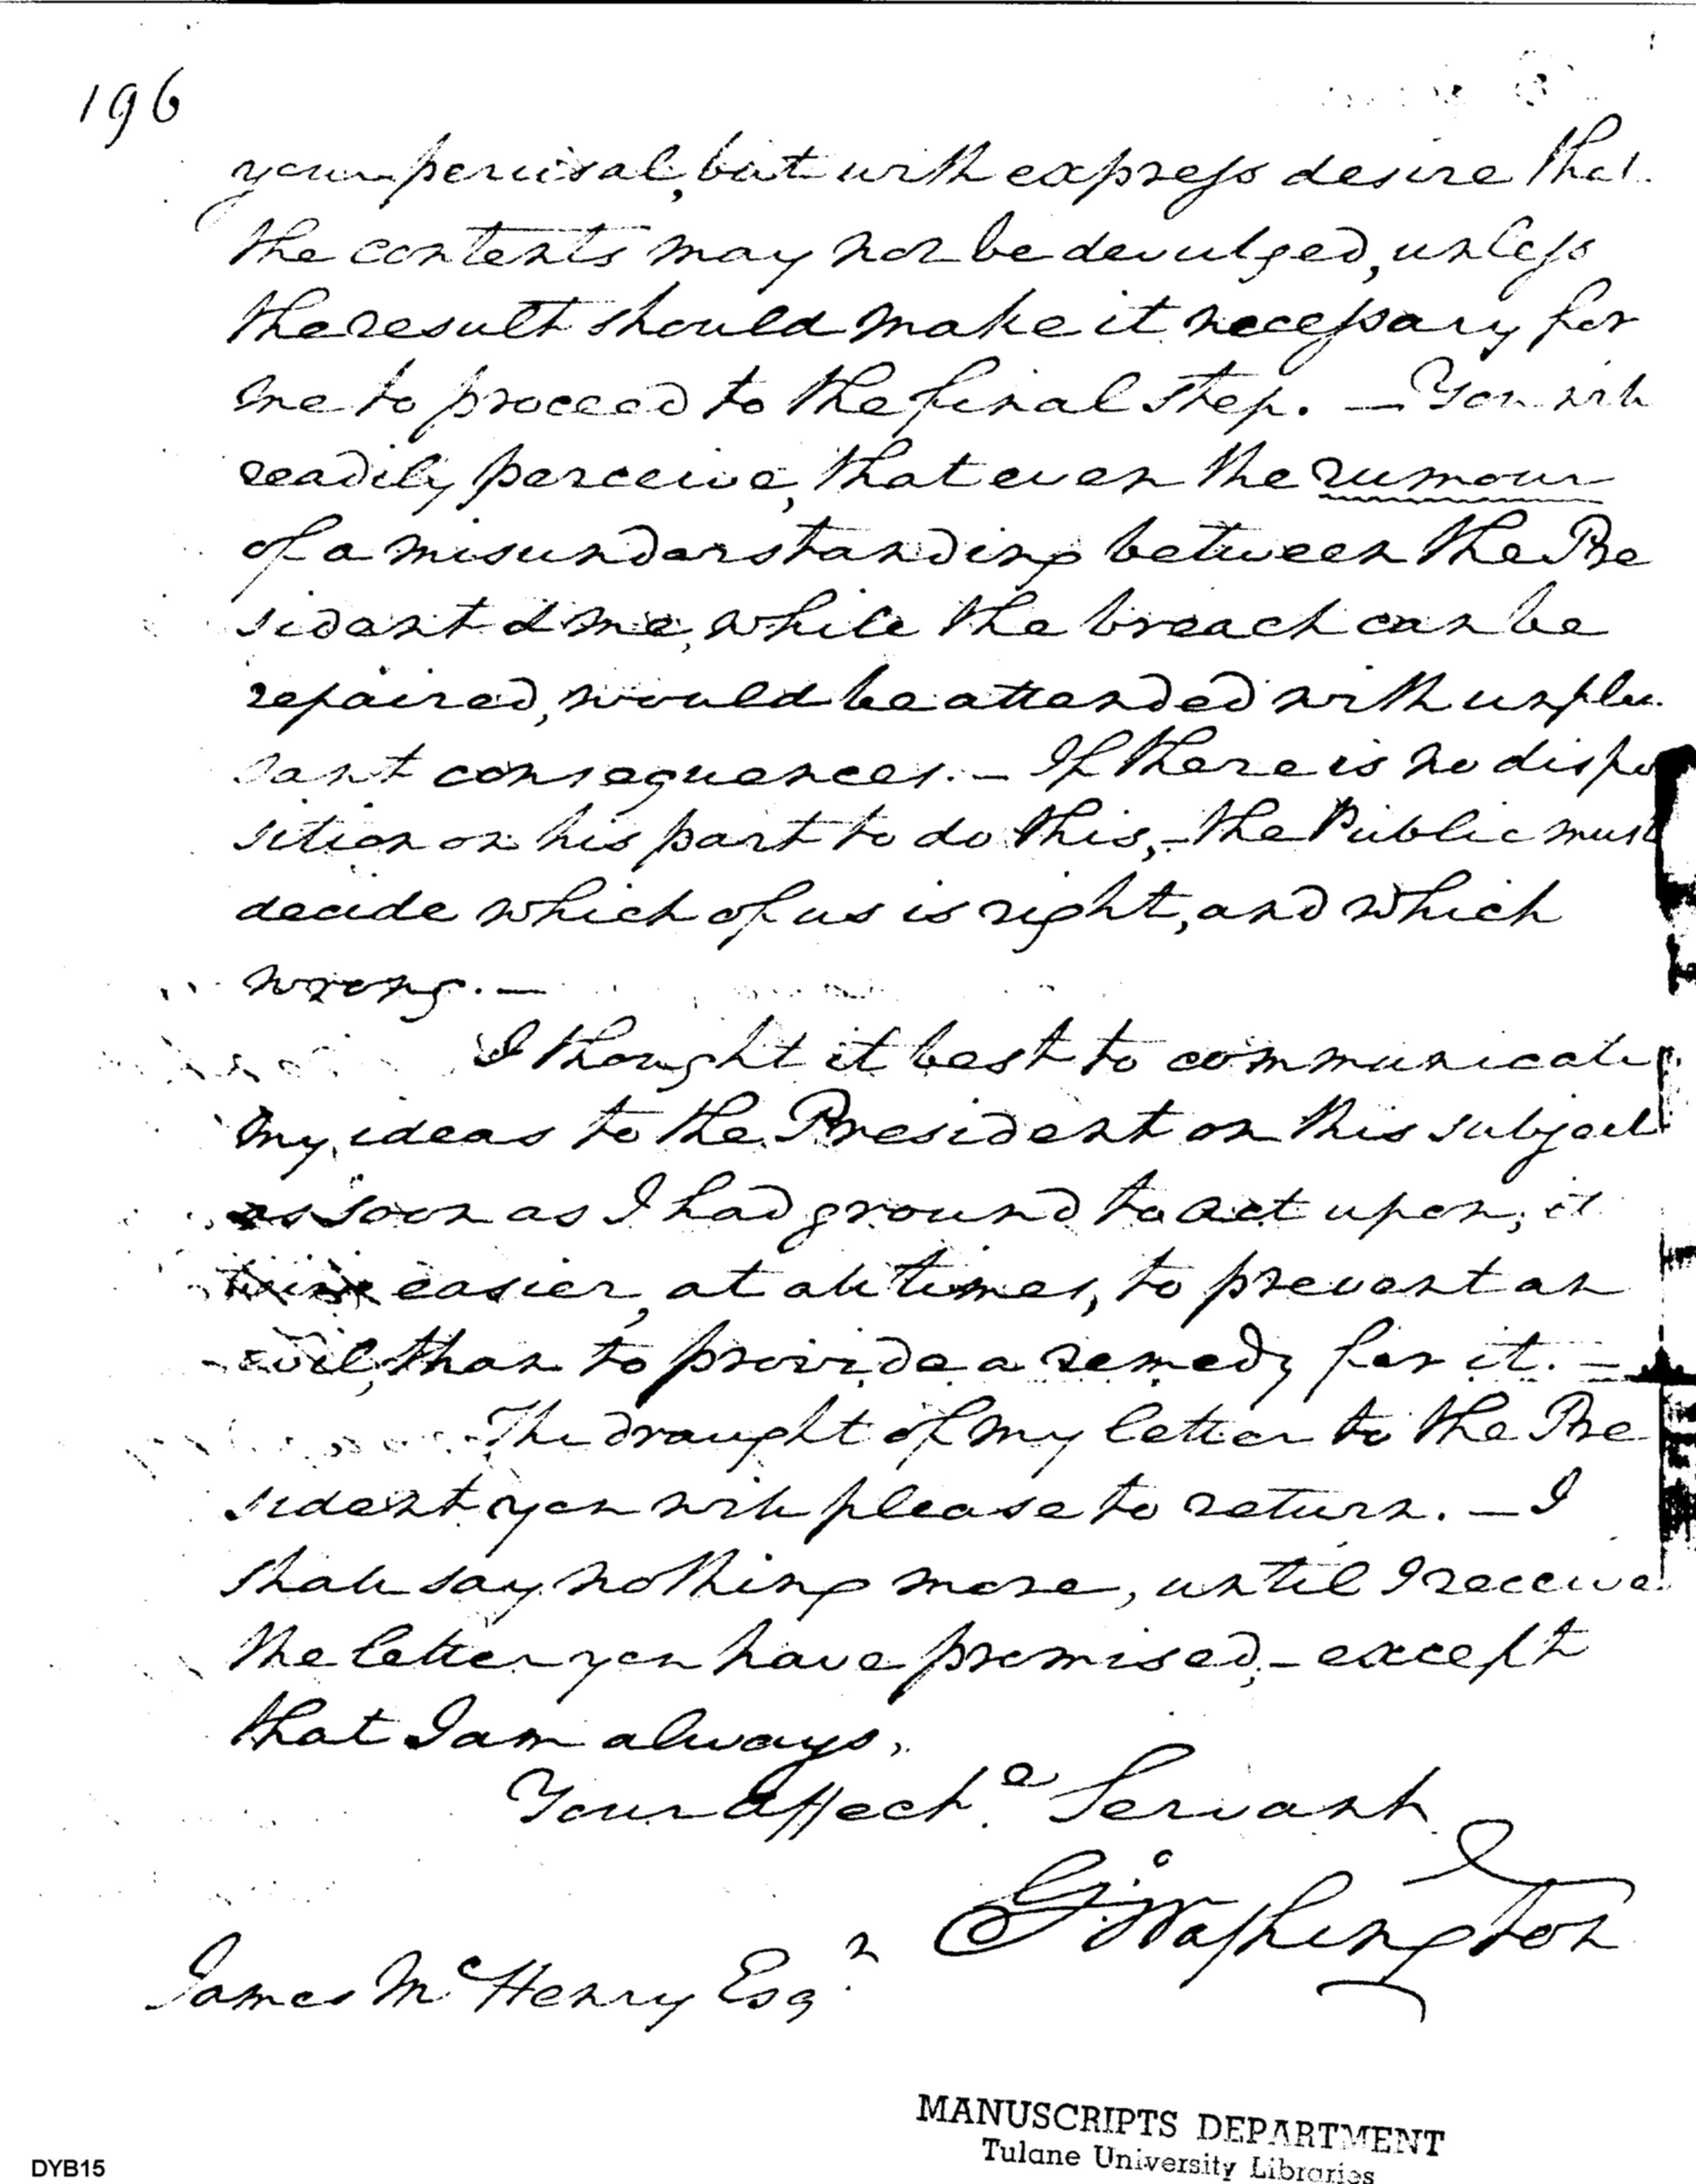 196
your perusal, but with express desire that
the contents may not be devulged, unless
the result should make it necessary for
me to proceed to the final step. — You will
readily perceive, that even the rumour
of a misunderstanding between the Pre
sident & me, while the breach can be
repaired, would be attended with unplea
sant consequences. — If there is no dispo
sition on his part to do this, — the Public must
decide which of us is right, and which
wrong. —
I thought it best to communicate
my ideas to the President on this subject
as soon as I had ground to act upon; it
being easier, at all times, to prevent an
evil, than to provide a remedy for it. —
The draught of my letter to the Pre
sident you will please to return. — I
shall say nothing more, until I receive
the letter you have promised, — except
that I am always,
Your Affect.e Servant
Go: Washington
James McHenry Esqr
MANUSCRIPTS DEPARTMENT
Tulane University Libraries
DYB15